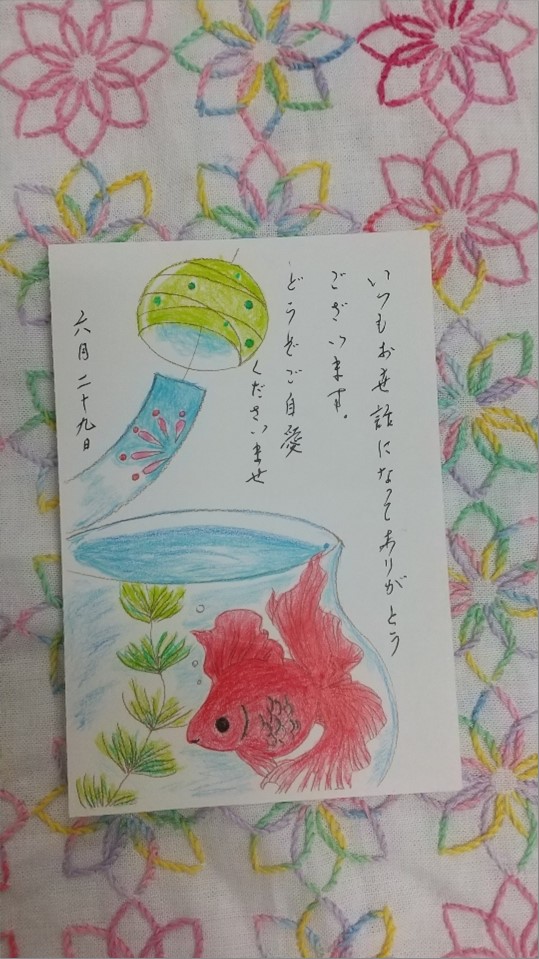 いつもお世話になってありがとう
ございます。
どうぞご自愛
くださいませ
六月二十九日